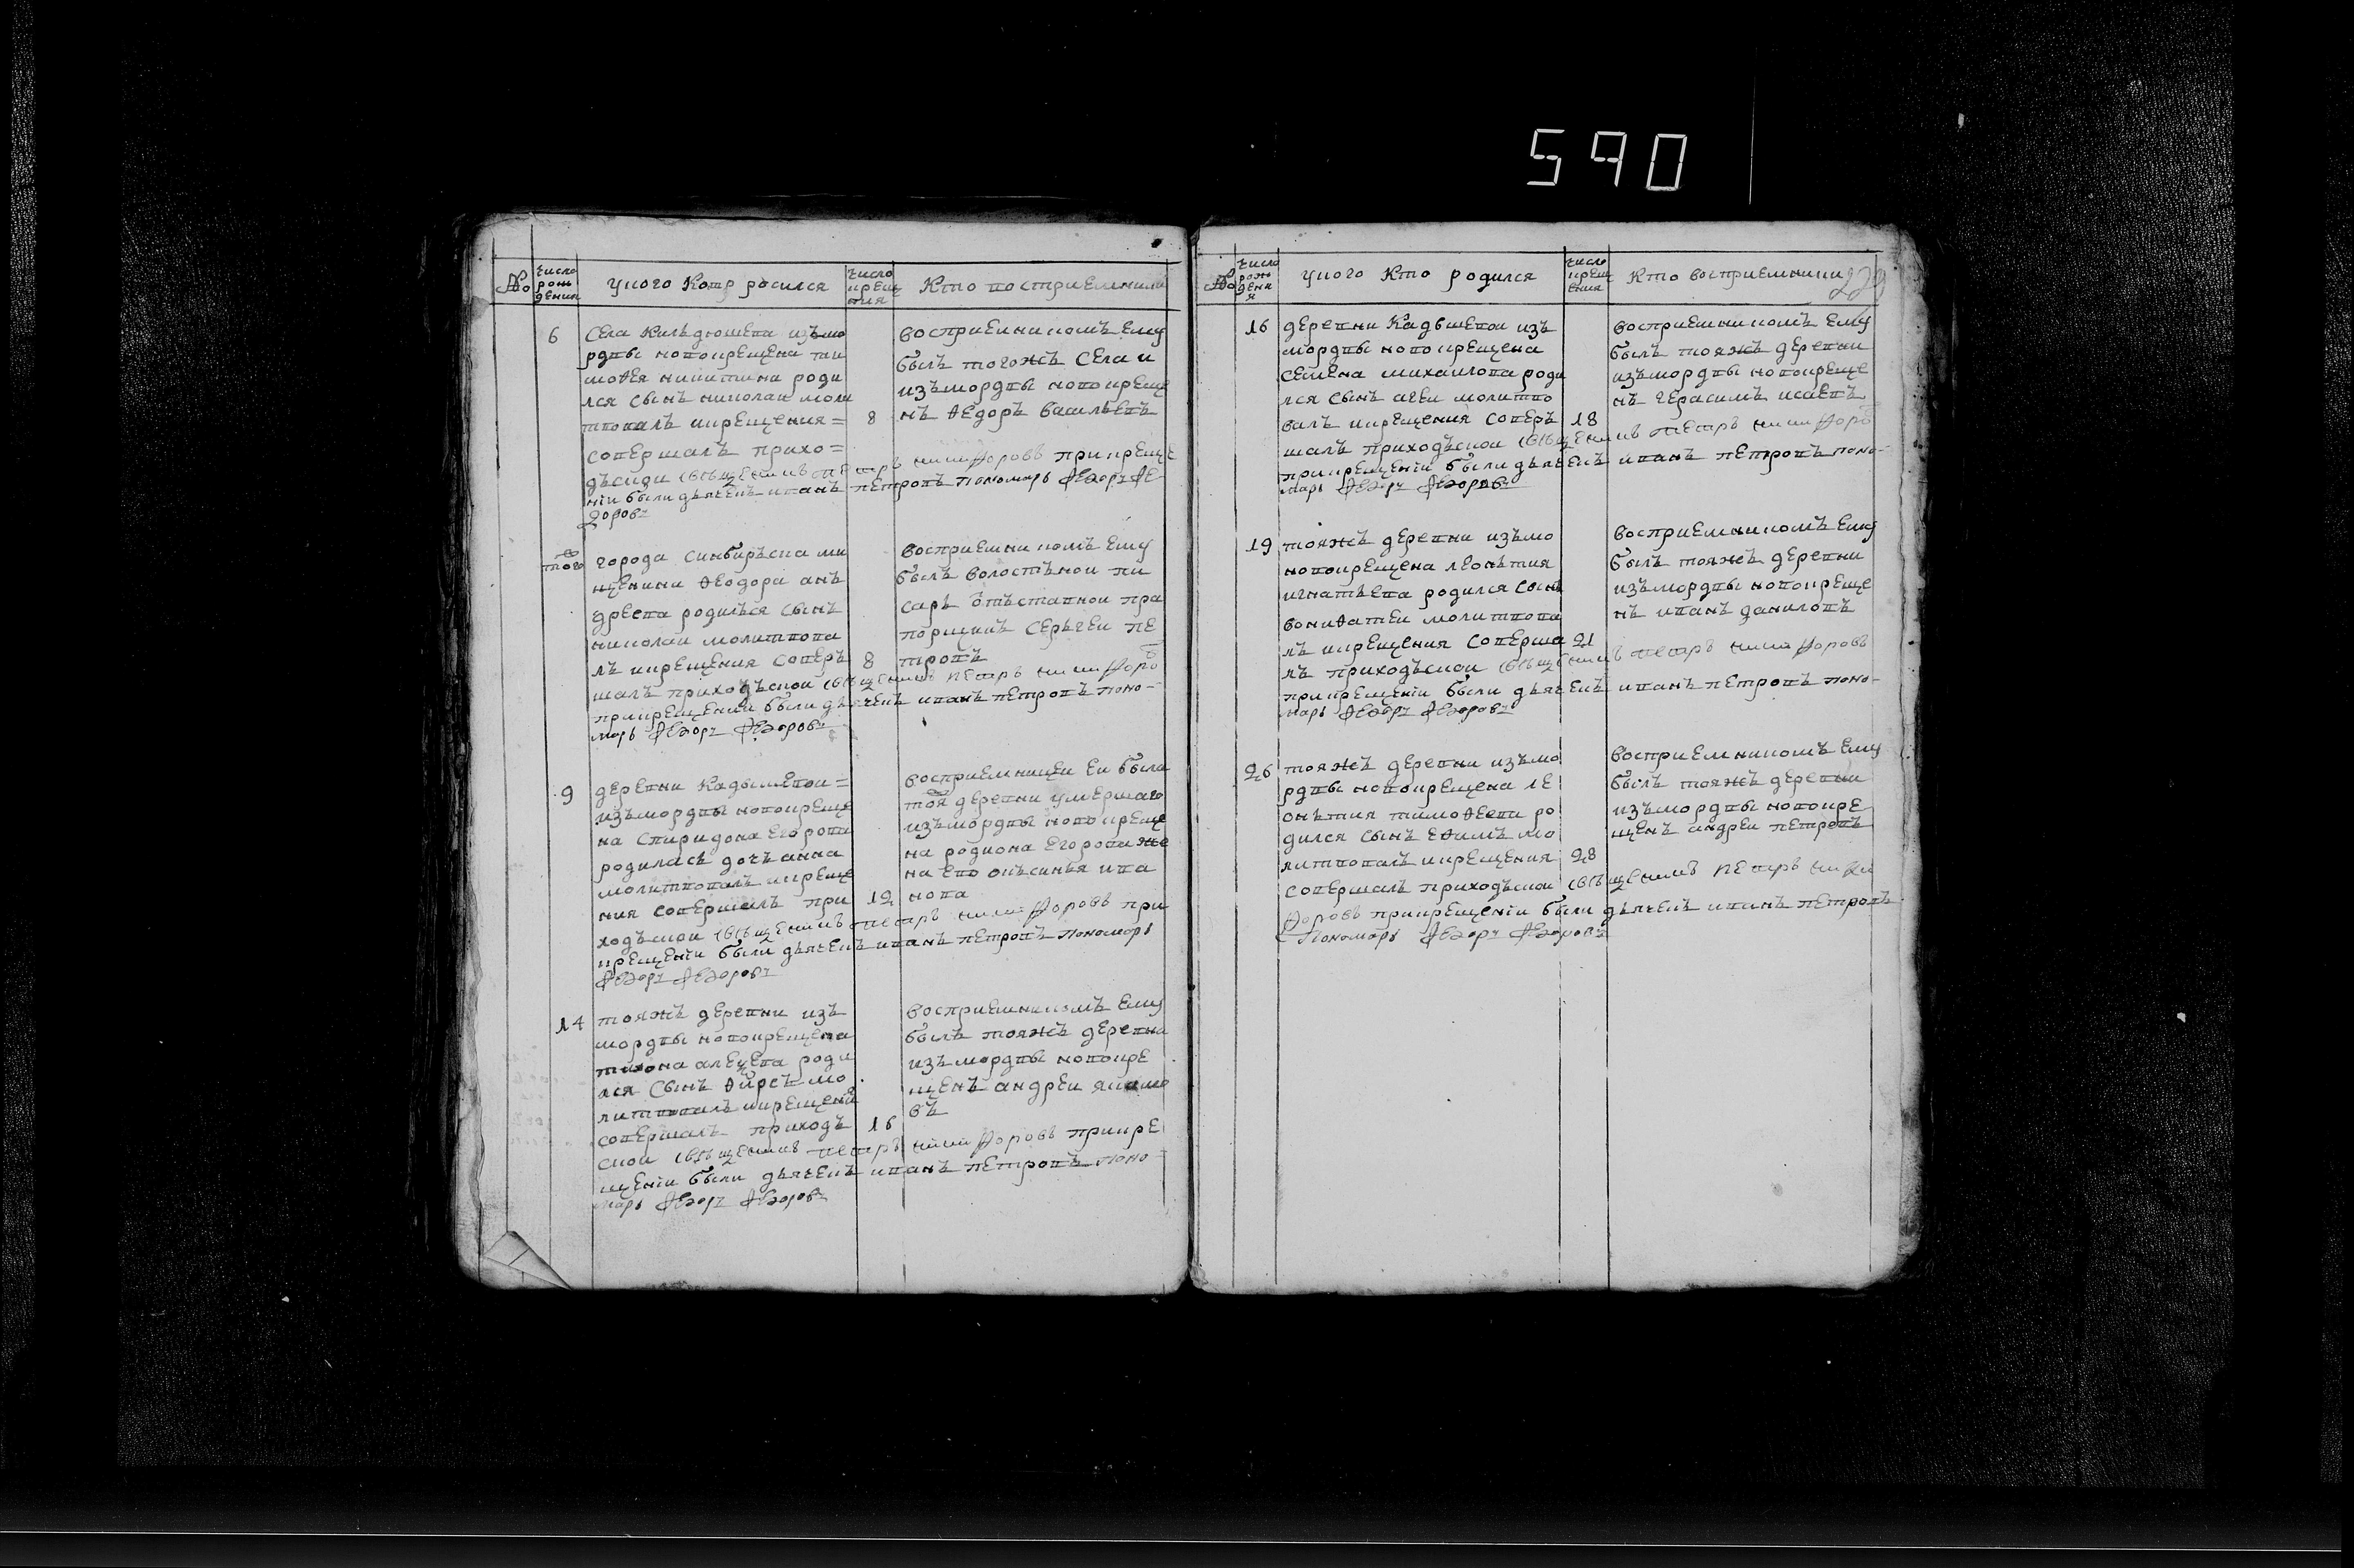 590
№
число рождения
у кого кто родился
число крещения
кто восприемники
6
села кильдюшева изъ мо
рдвы новокрещена ти
моѳея никитина роди
лся сынъ николаи моли
твовалъ икрещения =
8
совершалъ прихо =
дъскои священникъ петръ никифоровъ при креще
нiи были дьячекъ иванъ петровъ пономарь Федоръ Фе
доровъ
восприемникомъ ему
былъ тогожъ села и
изъ мордвы новокреще
нъ ѳедоръ васильевъ
того
города синбиръска ми
щенина ѳеодора анъ
дреева родилъся сынъ
николаи молитвова
лъ икрещения соверъ
8
шалъ приходъскои священникъ петръ никифоровъ
прикрещенiи были дьячекъ иванъ петровъ поно-
марь Федоръ Федоровъ
восприемникомъ ему
былъ волостънои пи
саръ отъставнои пра
порщикъ серъгеи пе
тровъ
9
деревни кадышевои =
изъ мордвы новокреще
на спиридона егорова
родиласъ дочъ анна
молитвовалъ икреще
ния совершалъ при
12
ходъскои священникъ петръ никифоровъ при
крещенiи были дьячекъ иванъ петровъ пономарь
Федоръ Федоровъ
восприемницеи еи была
тоя деревни умершаго
изъ мордвы новокреще
на родиона егорова же
на ево окъсинья ива
нова
14
тояжъ деревни изъ
мордвы новокрещена
тихона алеѯева роди
лся сынъ ѳирсъ мо
литвовалъ икрещени
совершалъ приходъ
16
скои священникъ петръ никифоровъ прикре
щенiи были дьячекъ иванъ петровъ поно-
марь Федоръ Федоровъ
восприемникомъ ему
былъ тояжъ деревни
изъ мордвы новокре
щенъ андреи якимо
въ
№
число рождения
у кого кто родился
число крещения
кто восприемники
229
16
деревни кадышевои изъ
мордвы новокрещена
семена михаилова роди
лся сынъ агеи молитво
валъ икрещения соверъ
18
шалъ приходъскои священникъ петръ никифоровъ
прикрещенiи были дьячекъ иванъ петровъ поно-
марь Федоръ Федоровъ
восприемникомъ ему
былъ тояжъ деревни
изъ мордвы новокреще
нъ герасимъ исаевъ
19
тояжъ деревни изъ мо
новокрещена леонътия
игнатьева родился сынъ
вониѳатеи молитвова
лъ икрещения соверша
21
лъ приходъскои священникъ петръ никифоровъ
прикрещенiи были дьячекъ иванъ петровъ поно-
марь Федоръ Федоровъ
восприемникомъ ему
былъ тояжъ деревни
изъ мордвы новокреще
нъ иванъ даниловъ
26
тояжъ деревни изъ мо
рдвы новокрещена ле
онътия тимоѳеева ро
дился сынъ еѳимъ мо
литвовалъ икрещения
28
совершалъ приходъскои священникъ петръ ники
форовъ прикрещенiи были дьячекъ иванъ петровъ
пономарь Федоръ Федоровъ
восприемникомъ ему
былъ тояжъ деревни
изъ мордвы новокре
щенъ андреи петровъ